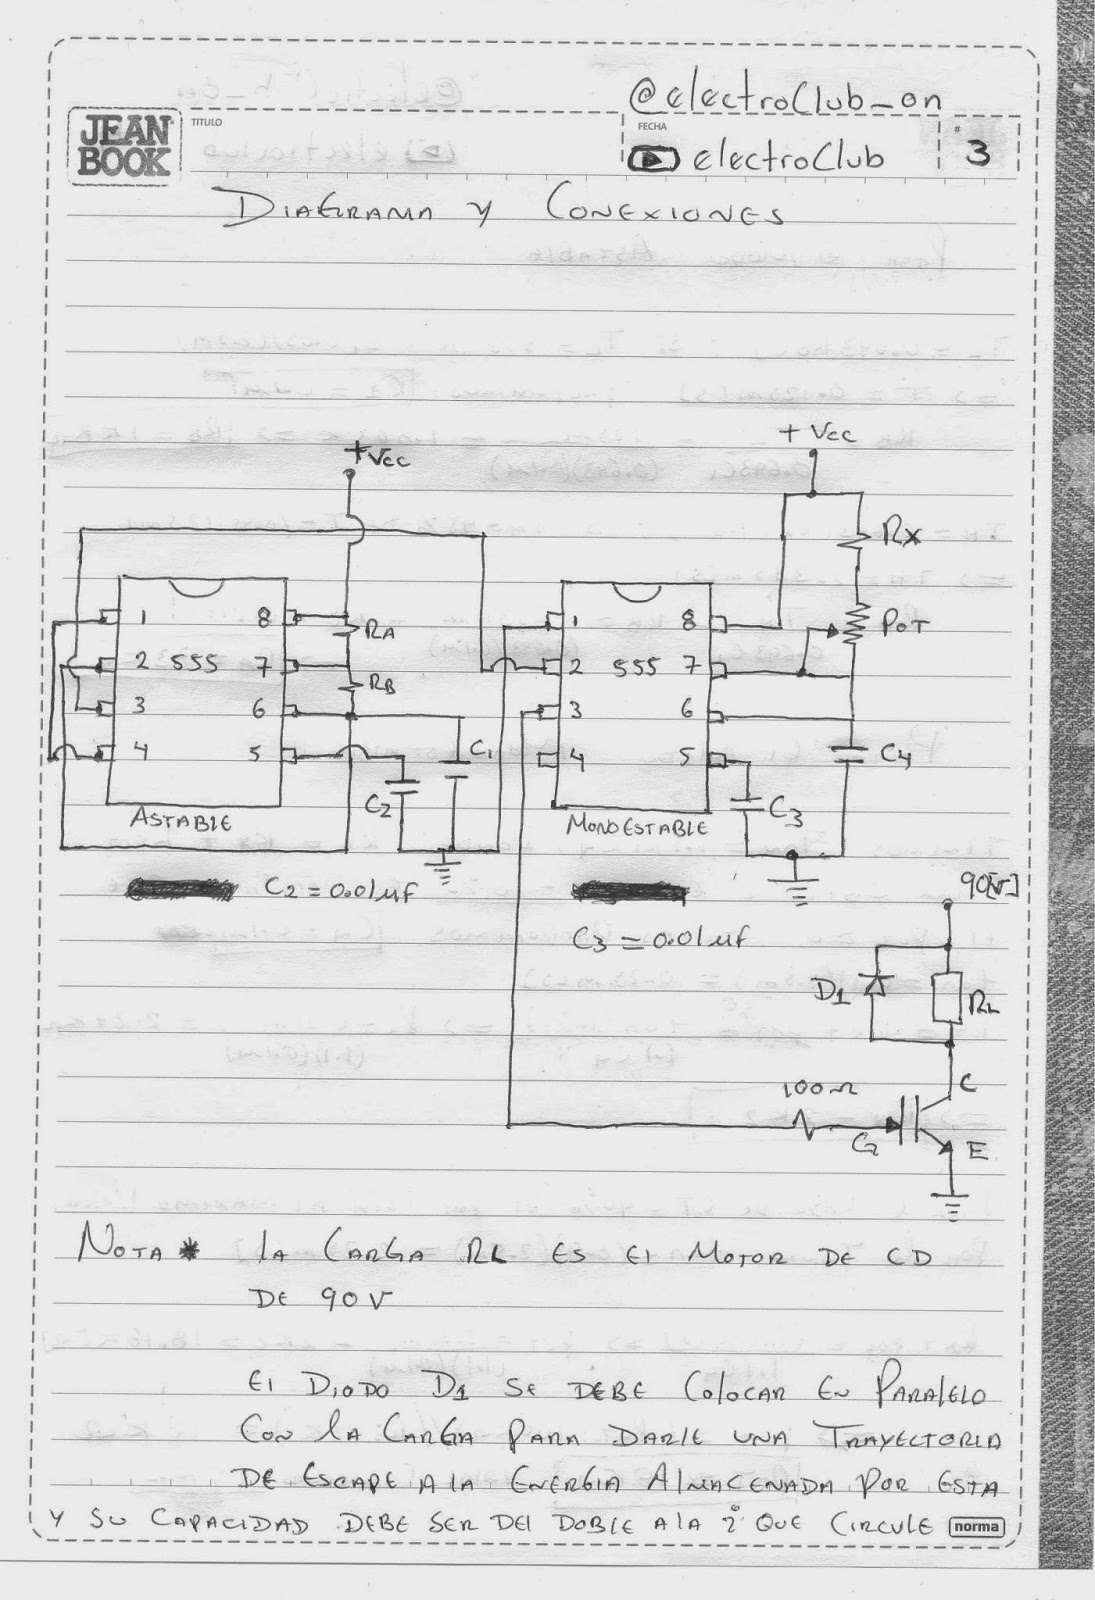 @electroClub_on
JEAN BOOK
TITULO
FECHA
electroClub
# 3
DIAGRAMA Y CONEXIONES
+Vcc
+Vcc
RX
POT
1 8 RA
2 555 7 RB
3 6
4 5 C1
C2
ASTABLE
1 8
2 555 7
3 6
4 5 C4
C3
MONOESTABLE
C2 = 0.01 µf
C3 = 0.01 µf
90[V]
D1 RL
100Ω
C
G
E
NOTA * LA CARGA RL ES El MOTOR DE CD
DE 90V
El DIODO D1 SE DEBE COLOCAR EN PARAlElO
CON lA CARGA PARA DARlE UNA TRAYECTORIA
DE ESCAPE A lA ENERGIA AlMACENADA POR ESTA
Y SU CAPACIDAD DEBE SER DEl DOBlE A lA i QUE CIRCULE
norma